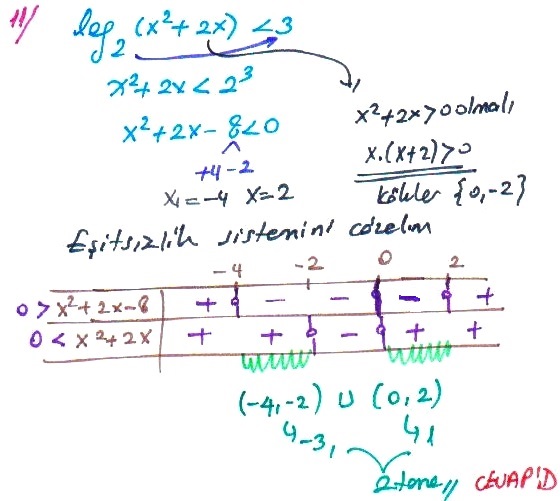 11/
log₂(x²+2x) < 3
x²+2x < 2³
x²+2x-8<0
+4 -2
x₁=-4 x=2
x²+2x>0 olmalı
x.(x+2)>0
kökler {0,-2}
Eşitsizlik sistemini çözelim
-4 -2 0 2
0 > x²+2x-8 + - - - +
0 < x²+2x + + - + +
(-4,-2) ∪ (0,2)
↳ -3, ↳ 1
2 tane,, CEVAP D